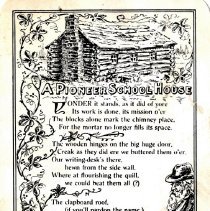 A PIONEER SCHOOL HOUSE
YONDER it stands, as it did of yore
Its work is done, its mission o'er
The blocks alone mark the chimney place,
For the mortar no longer fills its space.
The wooden hinges on the big huge door,
Creak as they did ere we buttered them o'er.
Our writing-desk's there,
hewn from the side wall.
Where at flourishing the quill,
we could beat them all (?)
The clapboard roof,
(if you'll pardon the name)